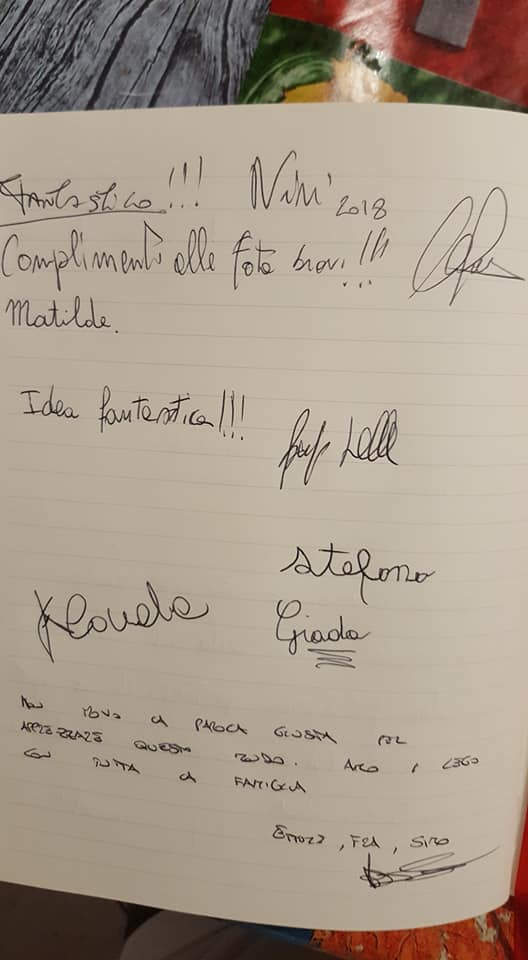 Fantastico!!! Ninì 2018
Complimenti alle foto bravi!!!
Matilde.
Idea fantastica!!!
Stefano
Giada
NON TROVO LA PAROLA GIUSTA PER
APPREZZARE QUESTO MONDO. AMO I LEGO
CON TUTTA LA FAMIGLIA
ETTORE, FEA, SIRO